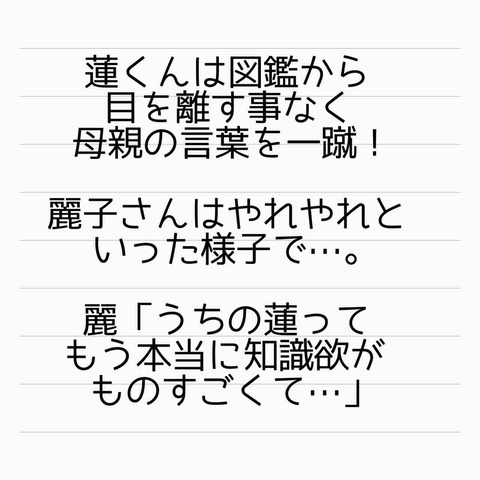 蓮くんは図鑑から
目を離す事なく
母親の言葉を一蹴！
麗子さんはやれやれと
いった様子で…。
麗「うちの蓮って
もう本当に知識欲が
ものすごくて…」